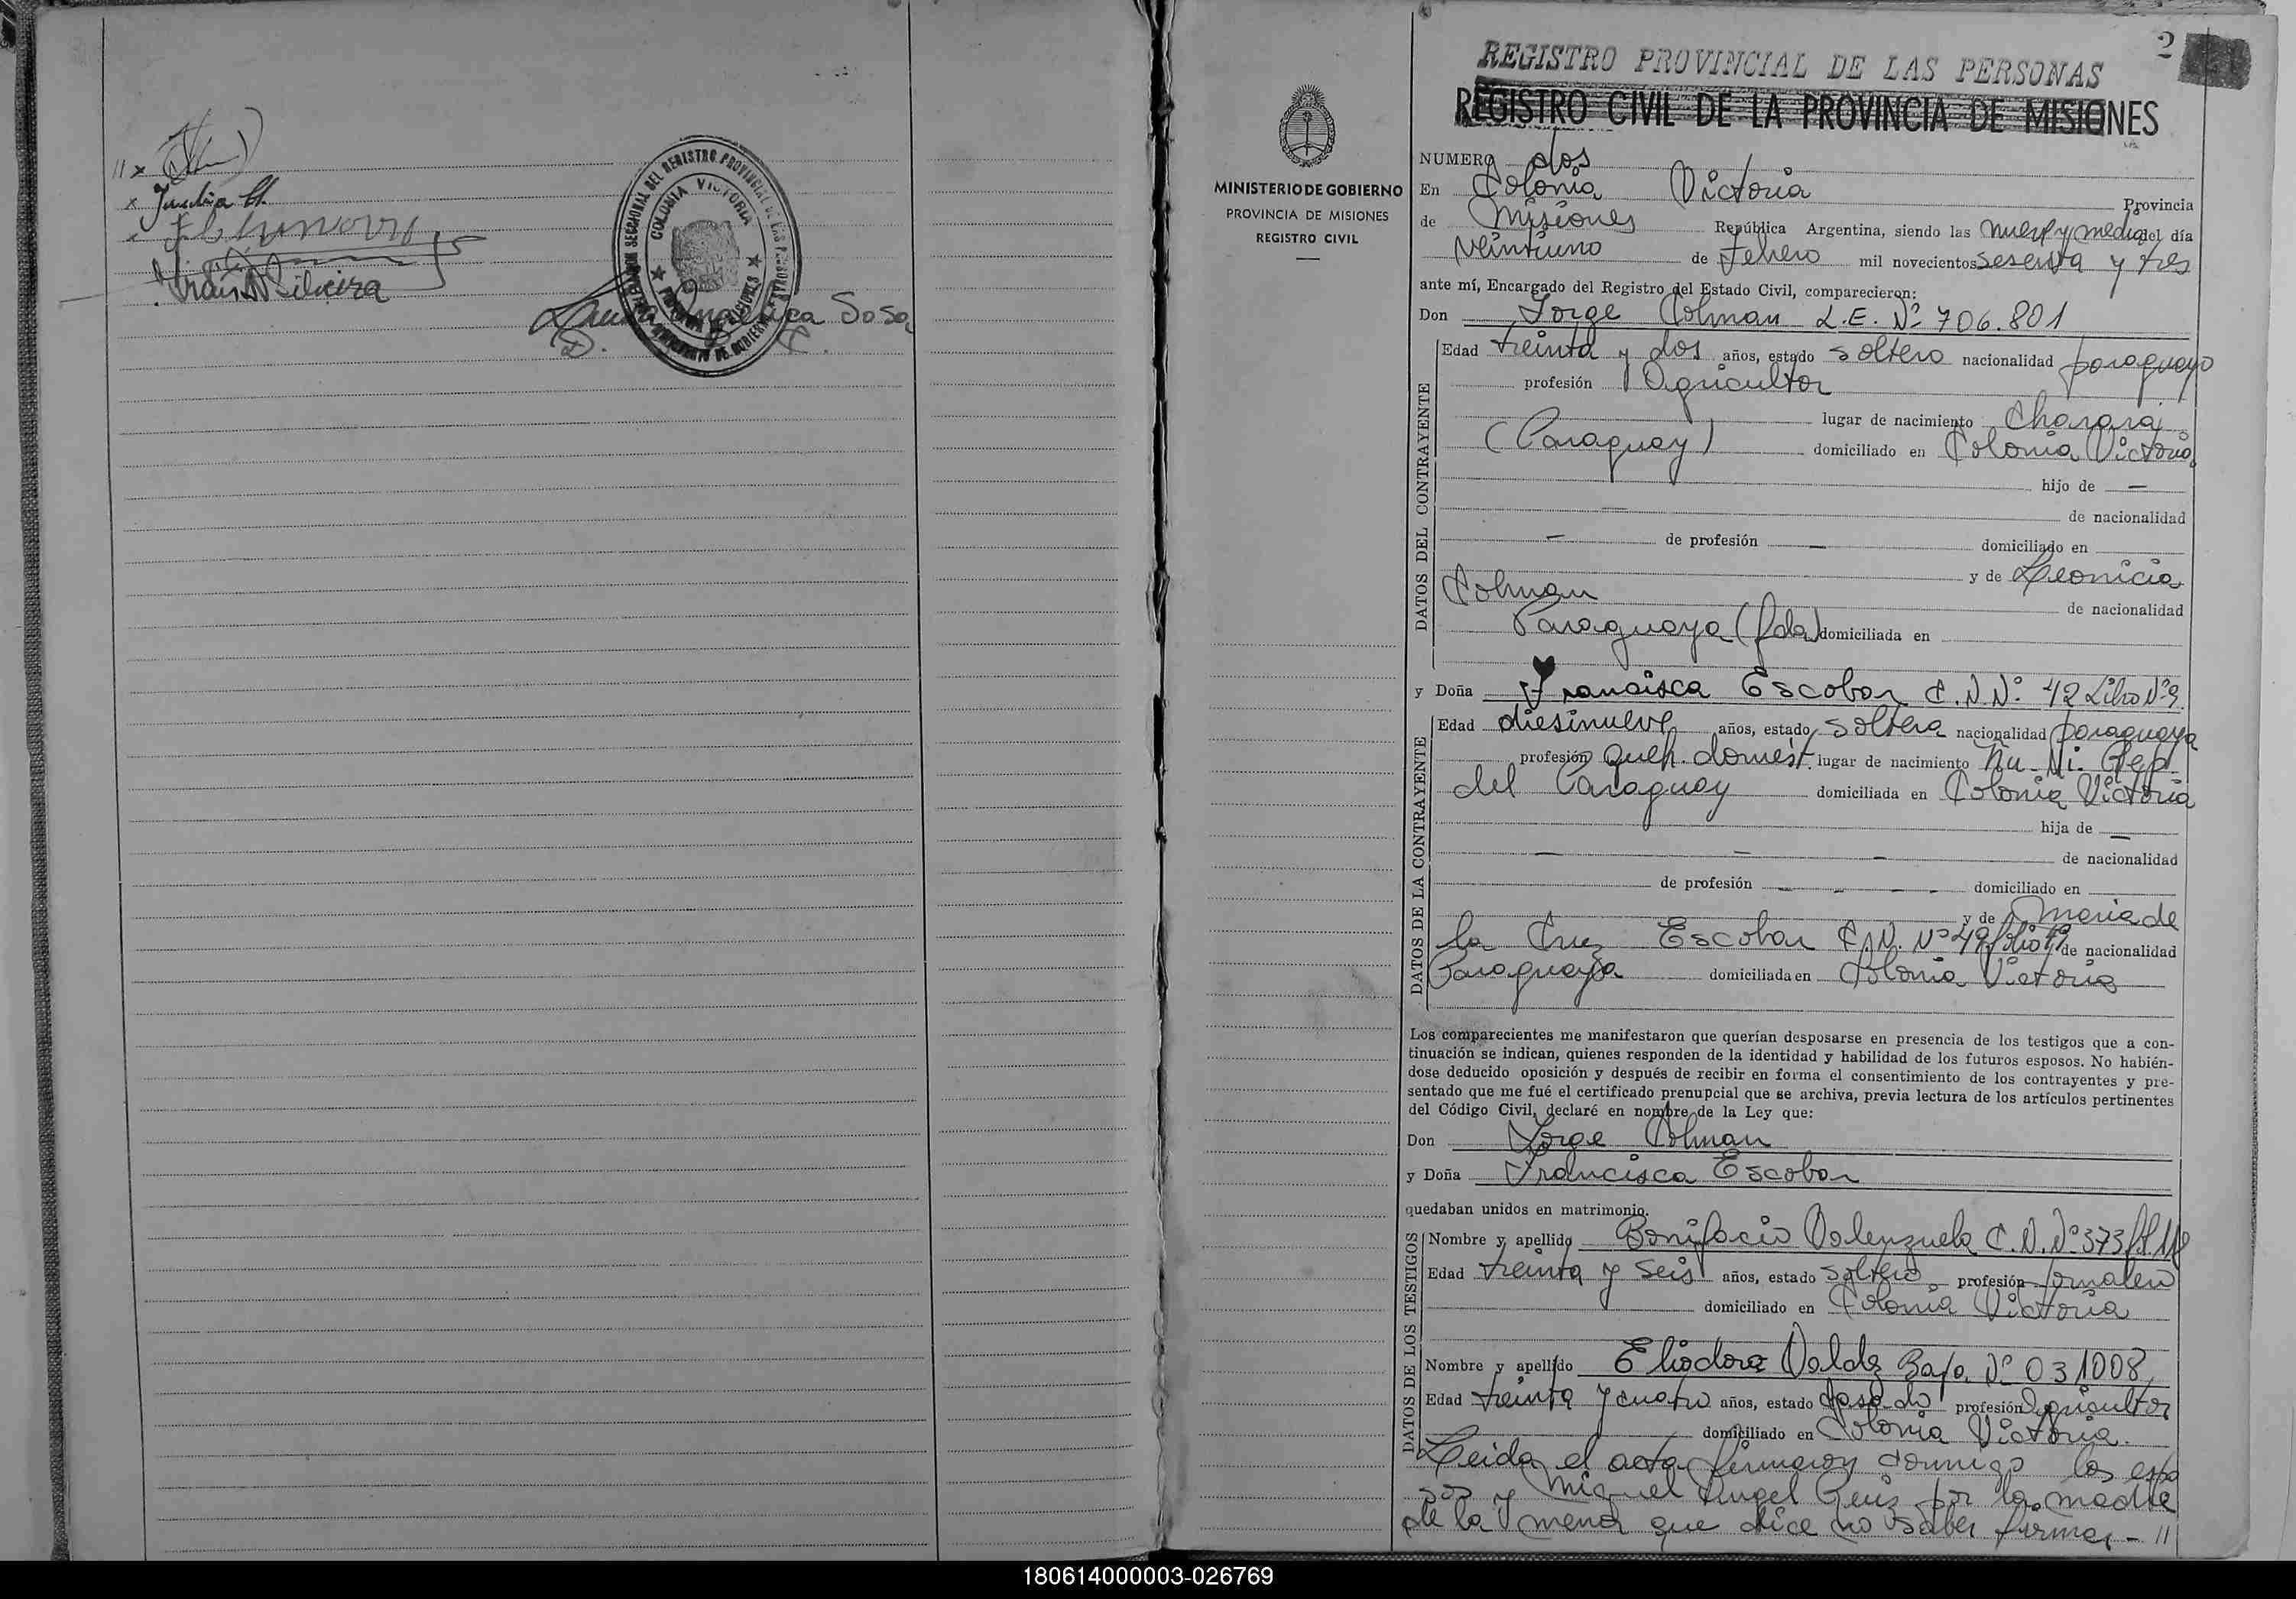 COLONIA VICTORIA
Sosa
2
REGISTRO PROVINCIAL DE LAS PERSONAS
REGISTRO CIVIL DE LA PROVINCIA DE MISIONES
MINISTERIO DE GOBIERNO
PROVINCIA DE MISIONES
REGISTRO CIVIL
NUMERO dos
En Colonia Victoria Provincia
de Misiones República Argentina, siendo las nueve y media del día
veintiuno de Febrero mil novecientos sesenta y tres
ante mí, Encargado del Registro del Estado Civil, comparecieron:
Don Jorge Colman L.E. Nº 706.801
DATOS DEL CONTRAYENTE
Edad treinta y dos años, estado soltero nacionalidad paraguayo
profesión Agricultor
lugar de nacimiento
(Paraguay) domiciliado en Colonia Victoria
hijo de —
— de nacionalidad
— de profesión — domiciliado en
y de Leonicia
Colman de nacionalidad
Paraguaya (fda) domiciliada en
y Doña Francisca Escobar C.N.Nº 42 Libro Nº 9
DATOS DE LA CONTRAYENTE
Edad diesinueve años, estado soltera nacionalidad paraguaya
profesión queh. domést. lugar de nacimiento Ñu-Mi. Rep.
del Paraguay domiciliada en Colonia Victoria
hija de —
— — — de nacionalidad
de profesión — — — — domiciliado en
y de María de
la Cruz Escobar C.N. Nº de nacionalidad
Paraguaya domiciliada en Colonia Victoria
Los comparecientes me manifestaron que querían desposarse en presencia de los testigos que a con-
tinuación se indican, quienes responden de la identidad y habilidad de los futuros esposos. No habién-
dose deducido oposición y después de recibir en forma el consentimiento de los contrayentes y pre-
sentado que me fué el certificado prenupcial que se archiva, previa lectura de los artículos pertinentes
del Código Civil, declaré en nombre de la Ley que:
Don Jorge Colman
y Doña Francisca Escobar
quedaban unidos en matrimonio.
DATOS DE LOS TESTIGOS
Nombre y apellido Bonifacio Valenzuela C.N. Nº 373
Edad treinta y seis años, estado soltero profesión Jornalero
domiciliado en Colonia Victoria
Nombre y apellido Eliodoro Valdez Baja Nº 031008
Edad treinta y cuatro años, estado Casado profesión Agricultor
domiciliado en Colonia Victoria.
Leida el acta firmaron conmigo los espo
sos y Miguel Angel por la madre
de la menor que dice no saber firmar - //
180614000003-026769